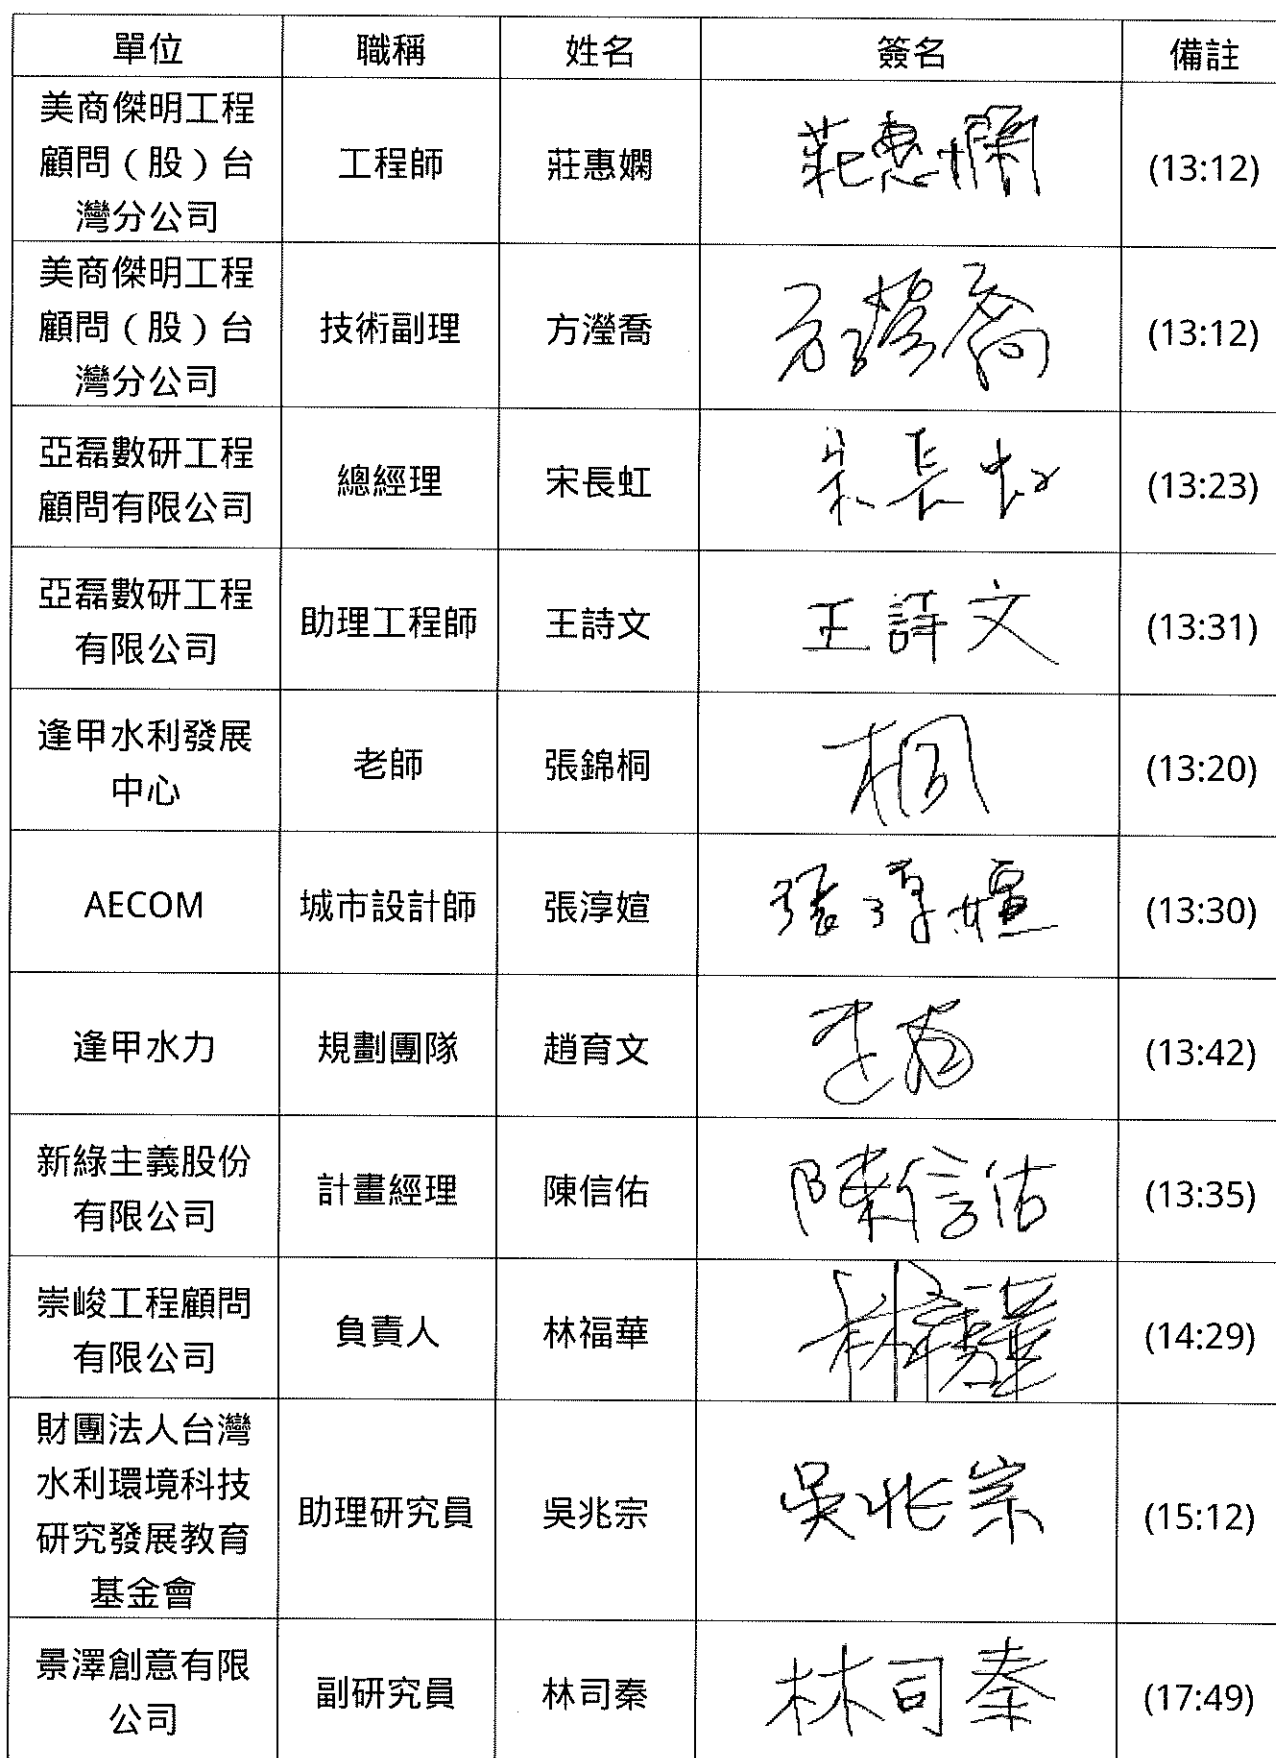 單位 職稱 姓名 簽名 備註
美商傑明工程
顧問（股）台
灣分公司
工程師 莊惠嫻 莊惠嫻 (13:12)
美商傑明工程
顧問（股）台
灣分公司
技術副理 方瀅喬 方瀅喬 (13:12)
亞磊數研工程
顧問有限公司
總經理 宋長虹 宋長虹 (13:23)
亞磊數研工程
有限公司
助理工程師 王詩文 王詩文 (13:31)
逢甲水利發展
中心
老師 張錦桐 桐 (13:20)
AECOM 城市設計師 張淳媗 張淳媗 (13:30)
逢甲水力 規劃團隊 趙育文 (13:42)
新綠主義股份
有限公司
計畫經理 陳信佑 陳信佑 (13:35)
崇峻工程顧問
有限公司
負責人 林福華 林福華 (14:29)
財團法人台灣
水利環境科技
研究發展教育
基金會
助理研究員 吳兆宗 吳兆宗 (15:12)
景澤創意有限
公司
副研究員 林司秦 林司秦 (17:49)